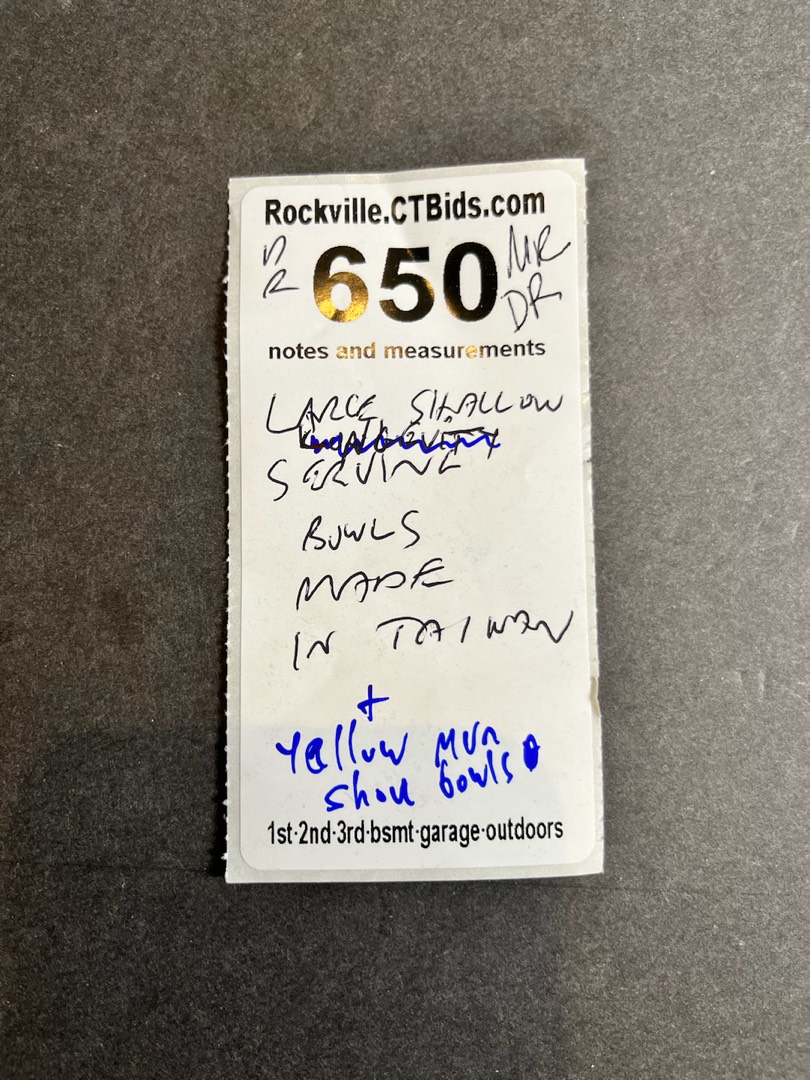 Rockville.CTBids.com
DR 650 MR
DR
notes and measurements
LARGE SHALLOW
LONGEVITY
SERVING
BOWLS
MADE
IN TAIWAN
+
Yellow MUN
Shou bowls
1st·2nd·3rd·bsmt·garage·outdoors